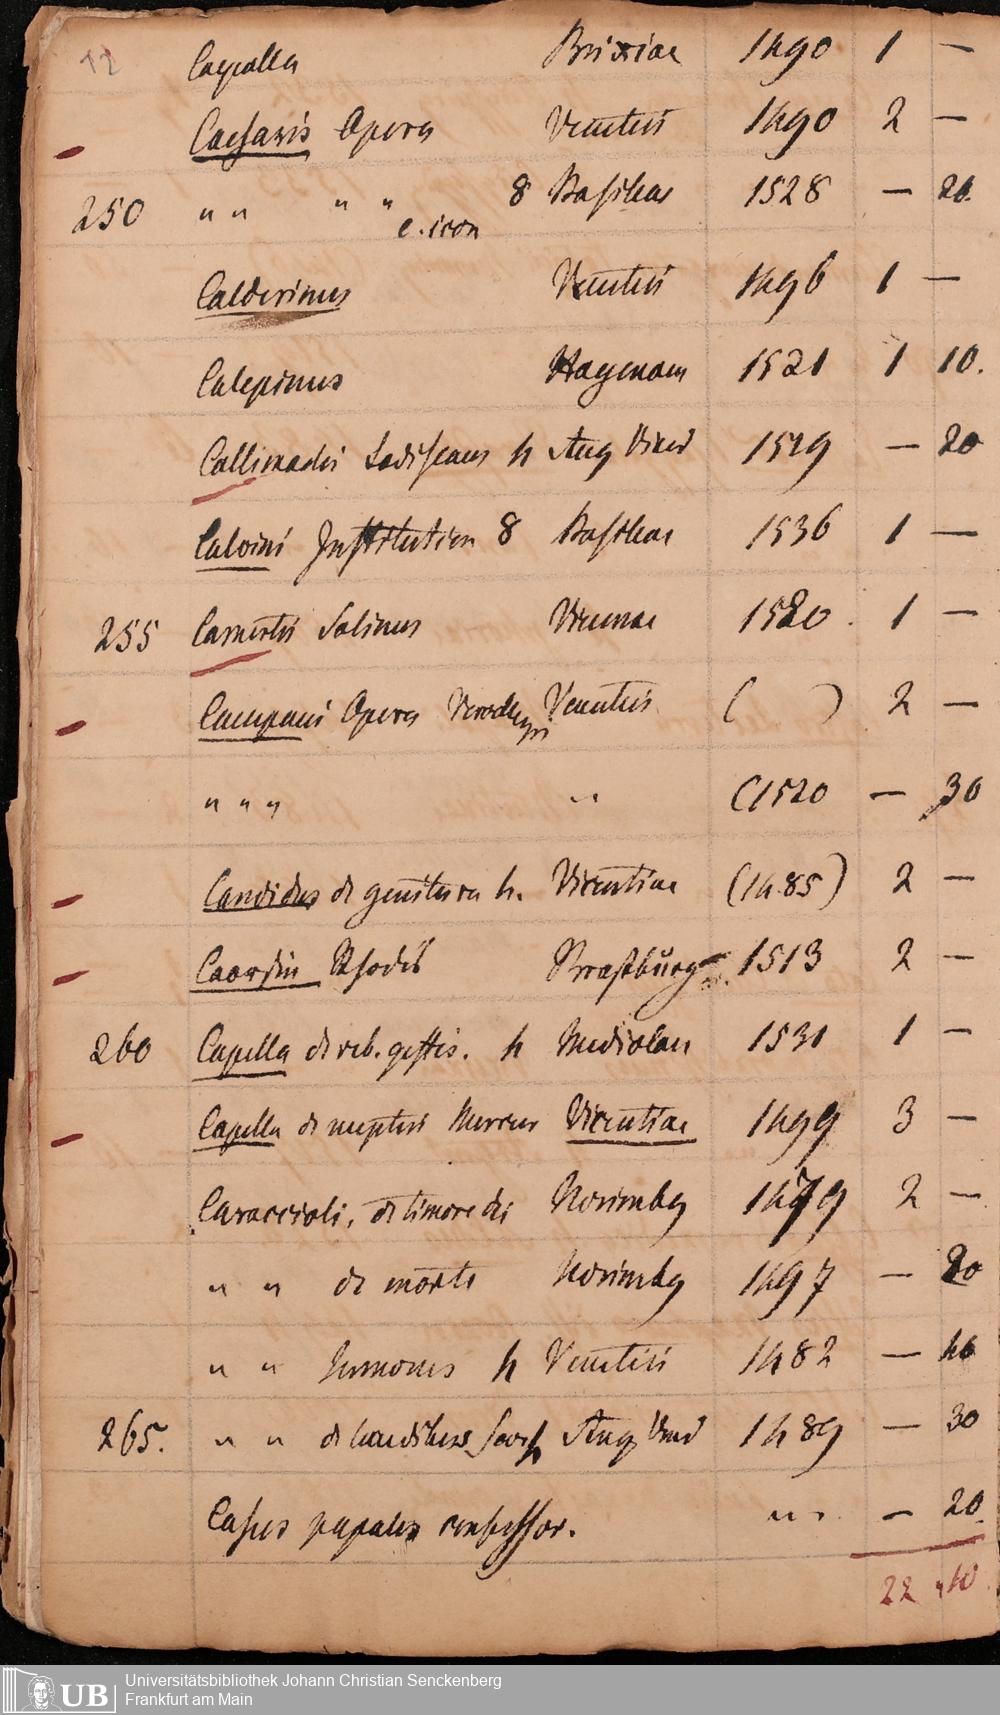 12
Capella Brixiae 1490 1 —
Caesaris Opera Venetiis 1490 2 —
250 " " " " c. icon 8 Basileae 1528 — 20.
Calderinus Venetiis 1496 1 —
Calepinus Hagenau 1521 1 10.
Callimachi Ladislaus 4 Aug Vind 1519 — 20
Calvini Institution 8 Basileae 1536 1 —
255 Camertis Solinus Viennae 1520 1 —
Campani Opera Venetiis ( ) 2 —
" " " " (1520 — 30
Candidus de genitura 4. Vicentiae (1485) 2 —
Caorsin Rhodis Strassburg 1513 2 —
260 Capella de reb. gestis. 4 Mediolan 1531 1 —
Capella de nuptiis Mercur Vicentiae 1499 3 —
Caraccioli, de timore dei Norimbg 1479 2 —
" " de morte Norimbg 1497 — 20
" " Sermones 4 Venetiis 1482 — 40
265. " " de laudibus Sanct Aug Vind 1489 — 30
Casus papales confessor. " " — 20.
22 " 10
Universitätsbibliothek Johann Christian Senckenberg
Frankfurt am Main
UB